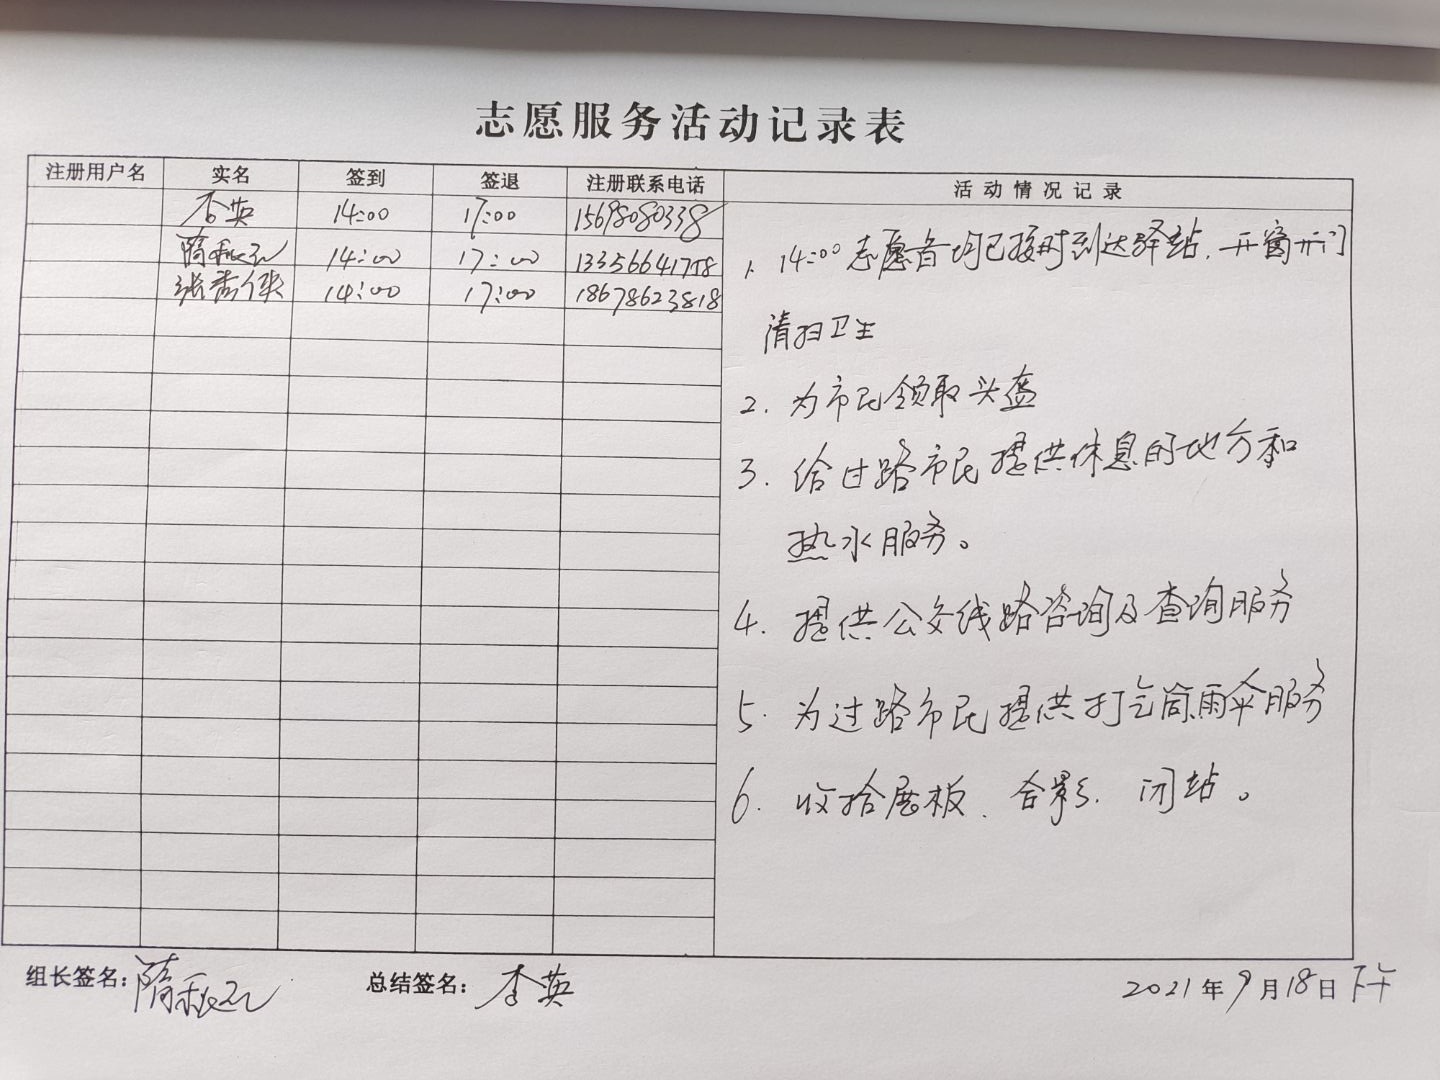 志愿服务活动记录表
注册用户名 实名 签到 签退 注册联系电话 活动情况记录
李英 14:00 17:00 15698080338
隋 14:00 17:00
张秀 14:00 17:00 18678623818
1. 14:00志愿者均已按时到达驿站.开窗开门
清扫卫生
2. 为市民领取头盔
3. 给过路市民提供休息的地方和
热水服务。
4. 提供公交线路咨询及查询服务
5. 为过路市民提供打气筒雨伞服务
6. 收拾展板、合影、闭站。
组长签名: 隋
总结签名: 李英
2021年9月18日下午